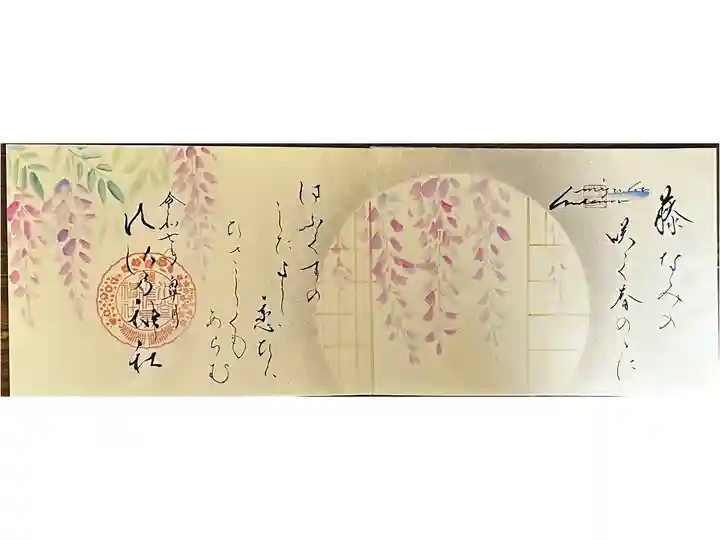 藤なみの
咲く春のゝに
はふくずの
したよし
恋ひば
ひさしくも
あらむ
令和 皐月
神社